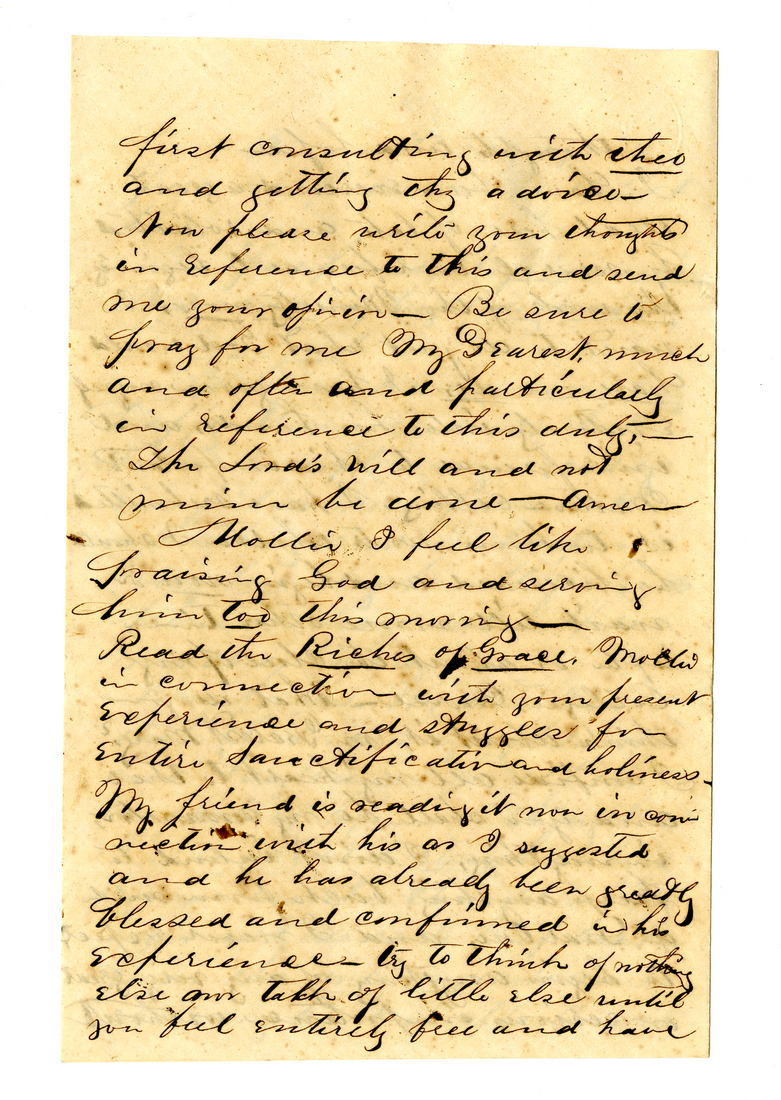 first consulting with thee
and getting thy advice—
Now please write your thoughts
in reference to this and send
me your opinion— Be sure to
pray for me My Dearest, much
and often and particularly
in reference to this duty,—
The Lord's will and not
mine be done — Amen
Mollie I feel like
praising God and serving
him too this morning—
Read the Riches of Grace, Mollie
in connection with your present
experience and struggles for
entire Sanctification and holiness—
My friend is reading it now in con-
nection with his as I suggested
and he has already been greatly
blessed and confirmed in his
experience— try to think of nothing
else nor talk of little else until
you feel entirely free and have